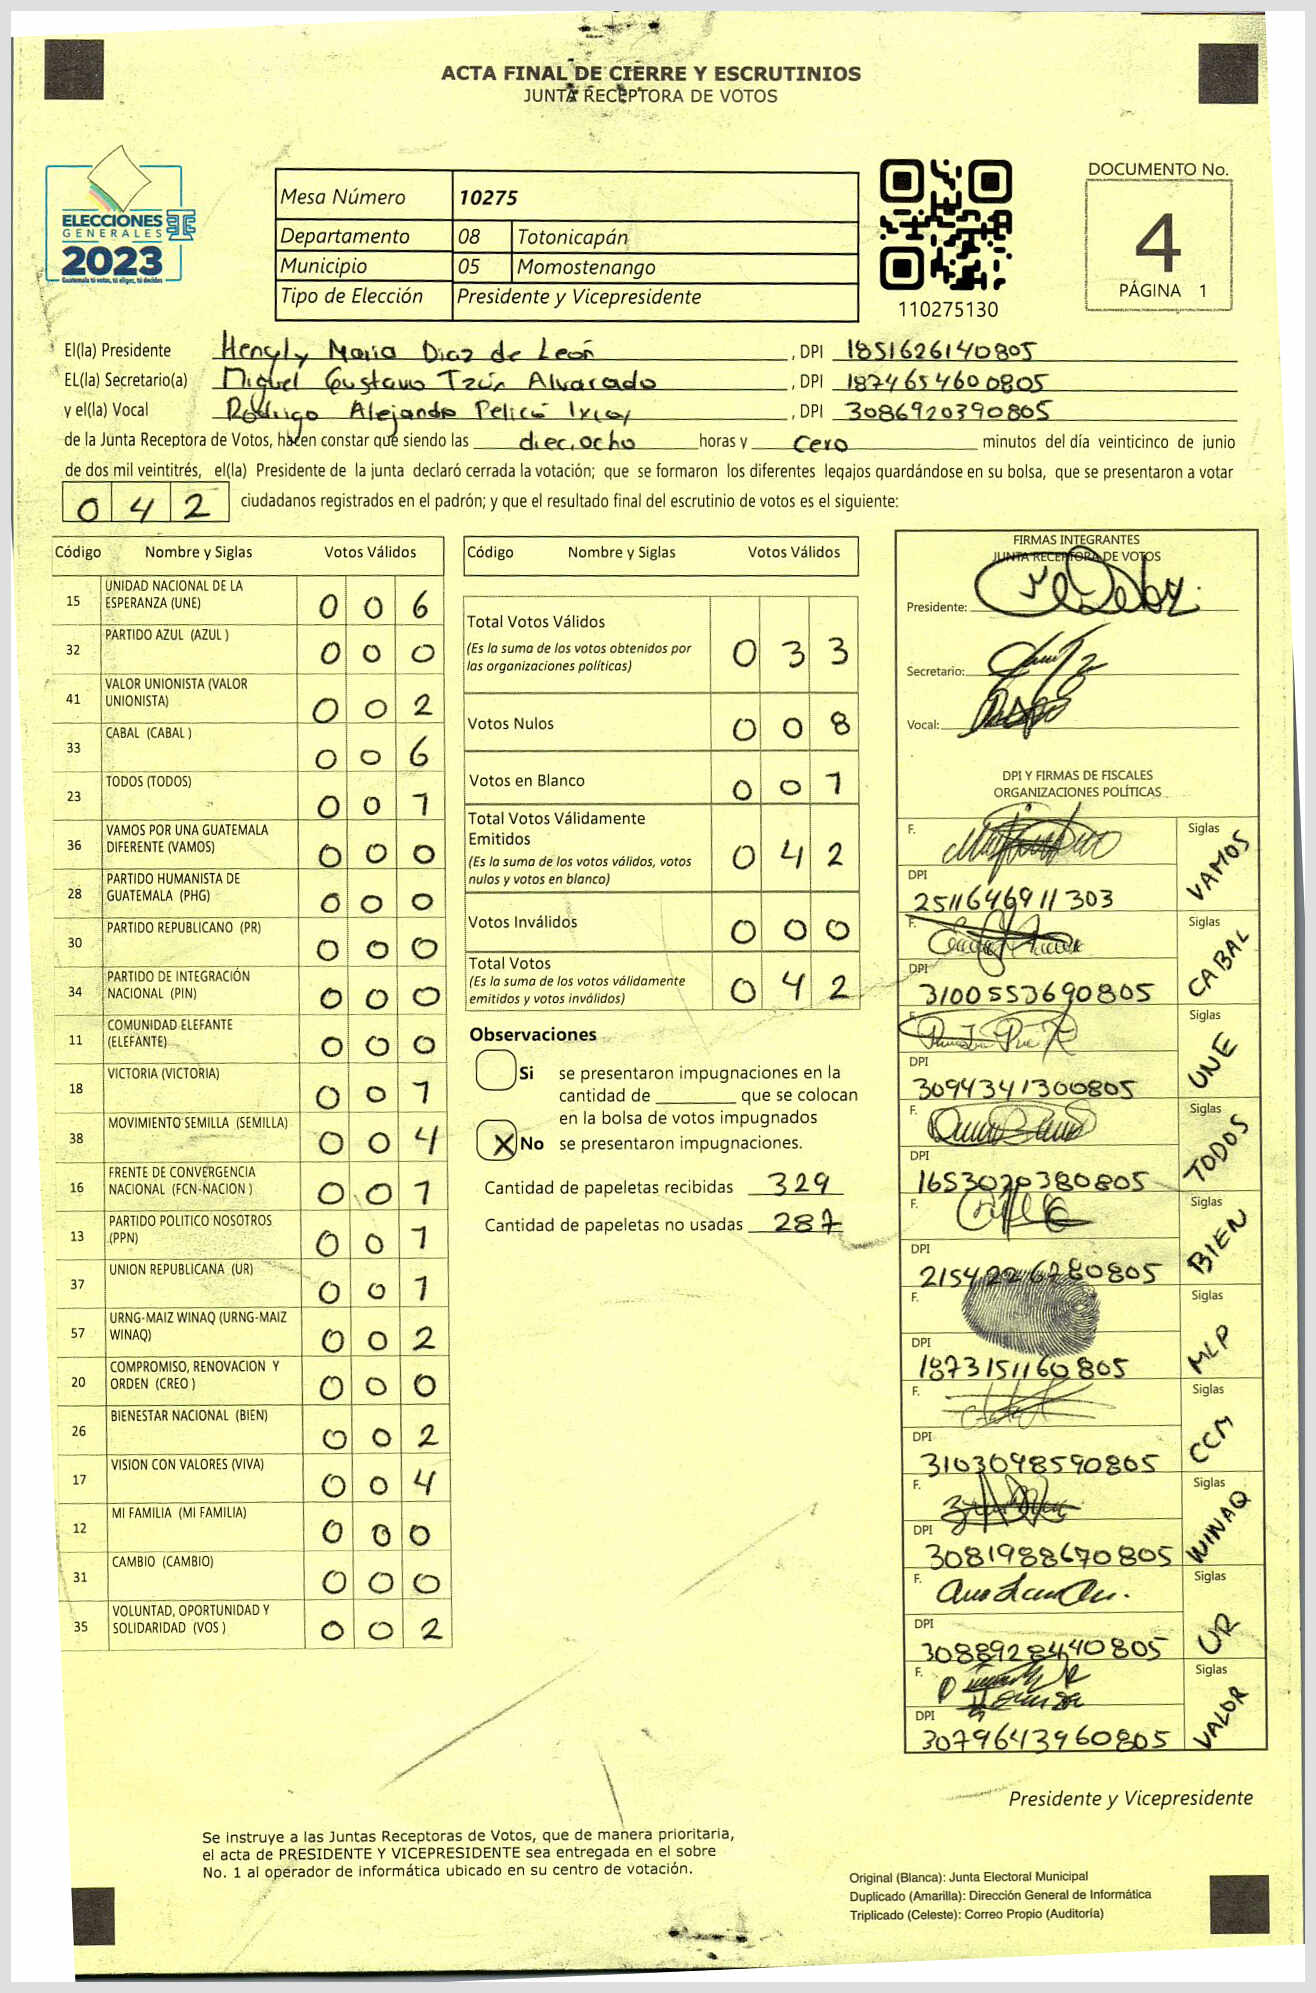 ACTA FINAL DE CIERRE Y ESCRUTINIOS
JUNTA RECEPTORA DE VOTOS
ELECCIONES
GENERALES
2023
Guatemala tú votas, tú eliges, tú decides
Mesa Número 10275
Departamento 08 Totonicapán
Municipio 05 Momostenango
Tipo de Elección Presidente y Vicepresidente
110275130
DOCUMENTO No.
4
PÁGINA 1
El(la) Presidente Hengly Maria Diaz de León, DPI 1851626140805
EL(la) Secretario(a) Miguel Gustavo Tzún Alvarado, DPI 1874654600805
y el(la) Vocal Rodrigo Alejando Pelicó, DPI 3086920390805
de la Junta Receptora de Votos, hacen constar que siendo las dieciocho horas y cero minutos del día veinticinco de junio
de dos mil veintitrés, el(la) Presidente de la junta declaró cerrada la votación; que se formaron los diferentes legajos guardándose en su bolsa, que se presentaron a votar
042 ciudadanos registrados en el padrón; y que el resultado final del escrutinio de votos es el siguiente:
Código Nombre y Siglas Votos Válidos
15 UNIDAD NACIONAL DE LA ESPERANZA (UNE) 0 0 6
32 PARTIDO AZUL (AZUL ) 0 0 0
41 VALOR UNIONISTA (VALOR UNIONISTA) 0 0 2
33 CABAL (CABAL ) 0 0 6
23 TODOS (TODOS) 0 0 1
36 VAMOS POR UNA GUATEMALA DIFERENTE (VAMOS) 0 0 0
28 PARTIDO HUMANISTA DE GUATEMALA (PHG) 0 0 0
30 PARTIDO REPUBLICANO (PR) 0 0 0
34 PARTIDO DE INTEGRACIÓN NACIONAL (PIN) 0 0 0
11 COMUNIDAD ELEFANTE (ELEFANTE) 0 0 0
18 VICTORIA (VICTORIA) 0 0 1
38 MOVIMIENTO SEMILLA (SEMILLA) 0 0 4
16 FRENTE DE CONVERGENCIA NACIONAL (FCN-NACION ) 0 0 1
13 PARTIDO POLITICO NOSOTROS (PPN) 0 0 1
37 UNION REPUBLICANA (UR) 0 0 1
57 URNG-MAIZ WINAQ (URNG-MAIZ WINAQ) 0 0 2
20 COMPROMISO, RENOVACION Y ORDEN (CREO ) 0 0 0
26 BIENESTAR NACIONAL (BIEN) 0 0 2
17 VISION CON VALORES (VIVA) 0 0 4
12 MI FAMILIA (MI FAMILIA) 0 0 0
31 CAMBIO (CAMBIO) 0 0 0
35 VOLUNTAD, OPORTUNIDAD Y SOLIDARIDAD (VOS ) 0 0 2
Código Nombre y Siglas Votos Válidos
Total Votos Válidos 0 3 3
(Es la suma de los votos obtenidos por
las organizaciones políticas)
Votos Nulos 0 0 8
Votos en Blanco 0 0 1
Total Votos Válidamente
Emitidos 0 4 2
(Es la suma de los votos válidos, votos
nulos y votos en blanco)
Votos Inválidos 0 0 0
Total Votos 0 4 2
(Es la suma de los votos válidamente
emitidos y votos inválidos)
Observaciones
Si se presentaron impugnaciones en la
cantidad de ________ que se colocan
en la bolsa de votos impugnados
X No se presentaron impugnaciones.
Cantidad de papeletas recibidas 329
Cantidad de papeletas no usadas 287
FIRMAS INTEGRANTES
JUNTA RECEPTORA DE VOTOS
Presidente:
Secretario:
Vocal:
DPI Y FIRMAS DE FISCALES
ORGANIZACIONES POLÍTICAS
F. Siglas VAMOS
DPI 2511646911303
F. Siglas CABAL
DPI 3100553690805
F. Siglas UNE
DPI 3094341300805
F. Siglas TODOS
DPI 1653020380805
F. Siglas BIEN
DPI 2154226780805
F. Siglas MLP
DPI 1873151160805
F. Siglas CCM
DPI 3103098590805
F. Siglas WINAQ
DPI 3081988670805
F. Siglas UR
DPI 3088928440805
F. Siglas VALOR
DPI 3079643960805
Presidente y Vicepresidente
Se instruye a las Juntas Receptoras de Votos, que de manera prioritaria,
el acta de PRESIDENTE Y VICEPRESIDENTE sea entregada en el sobre
No. 1 al operador de informática ubicado en su centro de votación.
Original (Blanca): Junta Electoral Municipal
Duplicado (Amarilla): Dirección General de Informática
Triplicado (Celeste): Correo Propio (Auditoría)